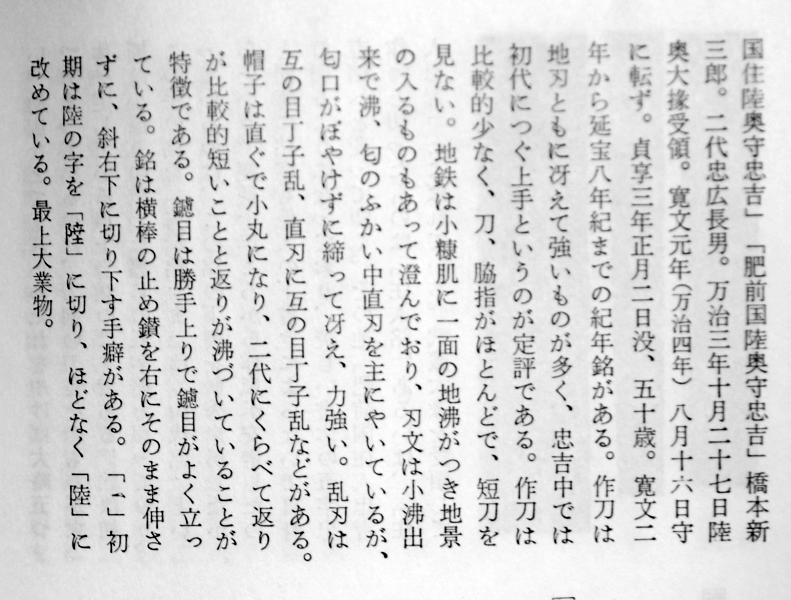 国住陸奥守忠吉」「肥前国陸奥守忠吉」橋本新
三郎。二代忠広長男。万治三年十月二十七日陸
奥大掾受領。寛文元年(万治四年)八月十六日守
に転ず。貞享三年正月二日没、五十歳。寛文二
年から延宝八年紀までの紀年銘がある。作刀は
地刃ともに冴えて強いものが多く、忠吉中では
初代につぐ上手というのが定評である。作刀は
比較的少なく、刀、脇指がほとんどで、短刀を
見ない。地鉄は小糠肌に一面の地沸がつき地景
の入るものもあって澄んでおり、刃文は小沸出
来で沸、匂のふかい中直刃を主にやいているが、
匂口がぼやけずに締って冴え、力強い。乱刃は
互の目丁子乱、直刃に互の目丁子乱などがある。
帽子は直ぐで小丸になり、二代にくらべて返り
が比較的短いことと返りが沸づいていることが
特徴である。鑢目は勝手上りで鑢目がよく立っ
ている。銘は横棒の止め鑚を右にそのまま伸さ
ずに、斜右下に切り下す手癖がある。「」初
期は陸の字を「陸」に切り、ほどなく「陸」に
改めている。最上大業物。